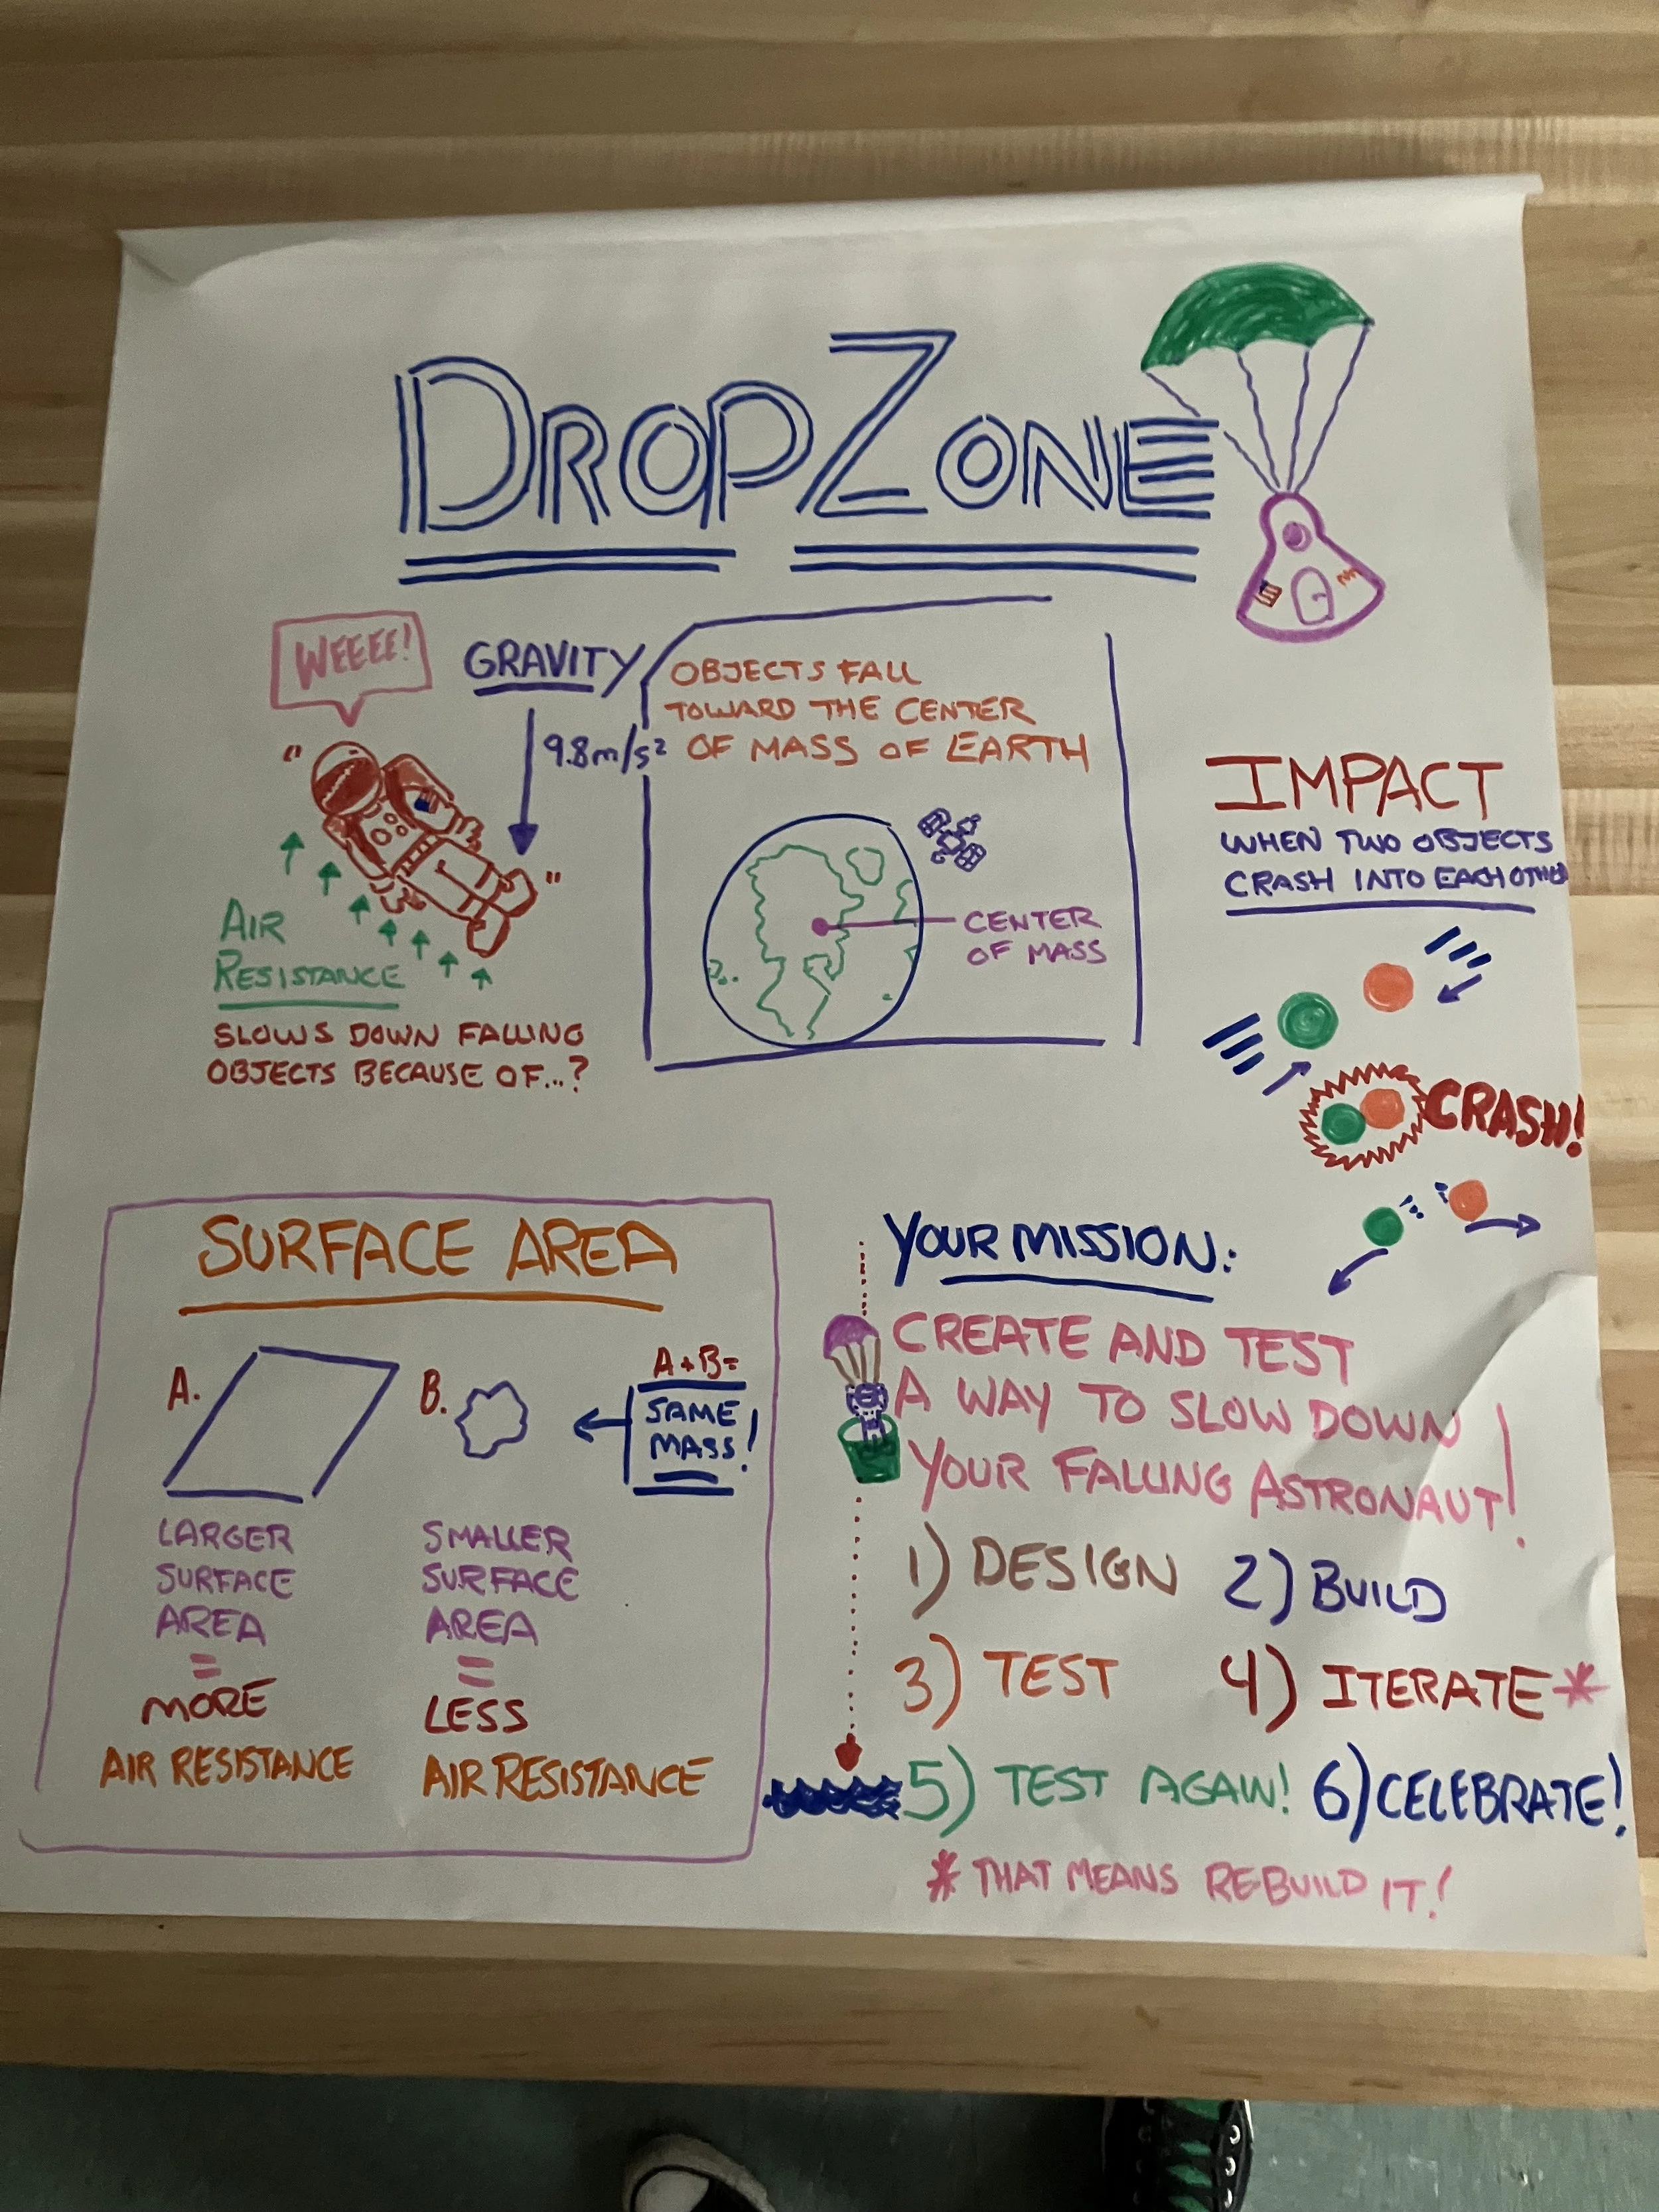 DROPZONE
WEEEE!
GRAVITY
9.8m/s²
OBJECTS FALL
TOWARD THE CENTER
OF MASS OF EARTH
CENTER
OF MASS
AIR
RESISTANCE
SLOWS DOWN FALLING
OBJECTS BECAUSE OF...?
IMPACT
WHEN TWO OBJECTS
CRASH INTO EACH OTHER
CRASH!
SURFACE AREA
A.
B.
A+B=
SAME
MASS!
LARGER
SURFACE
AREA
=
MORE
AIR RESISTANCE
SMALLER
SURFACE
AREA
=
LESS
AIR RESISTANCE
YOUR MISSION:
CREATE AND TEST
A WAY TO SLOW DOWN
YOUR FALLING ASTRONAUT!
1) DESIGN 2) BUILD
3) TEST 4) ITERATE*
5) TEST AGAIN! 6) CELEBRATE!
* THAT MEANS REBUILD IT!